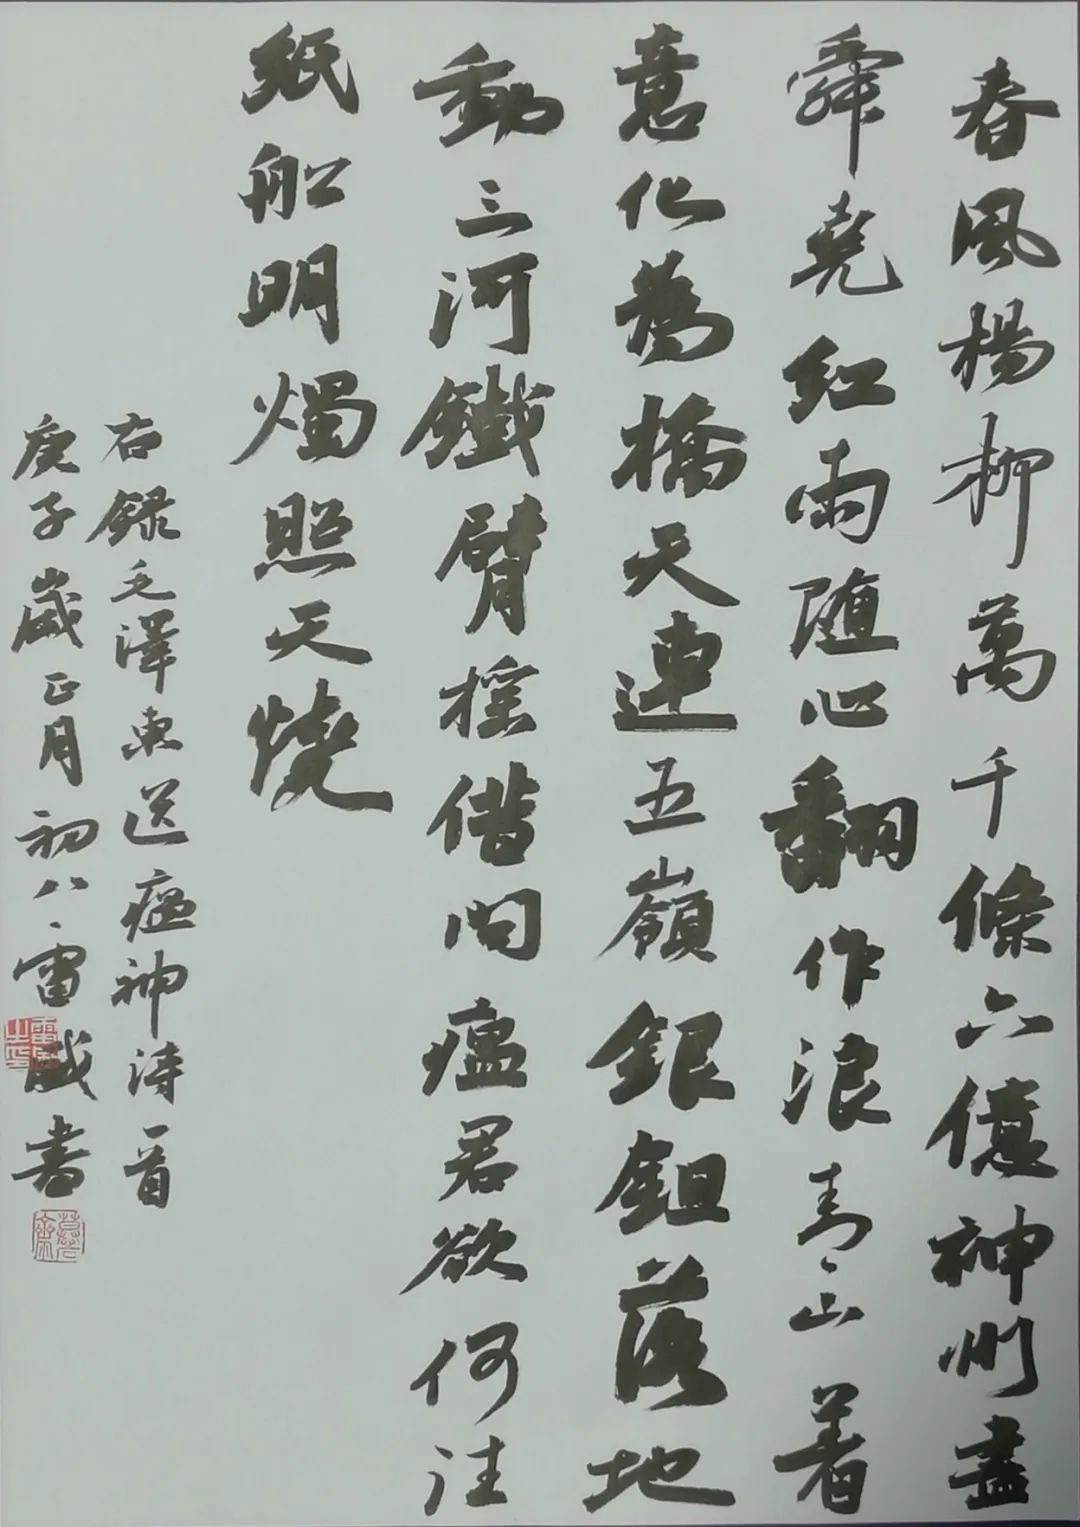 春風楊柳萬千條六億神州盡
舜堯紅雨随心翻作浪青山着
意化為橋天連五嶺銀鉏落地
動三河鐵臂摇借问瘟君欲何往
紙船明燭照天燒
右録毛澤東送瘟神詩一首
庚子歲正月初八雷
書